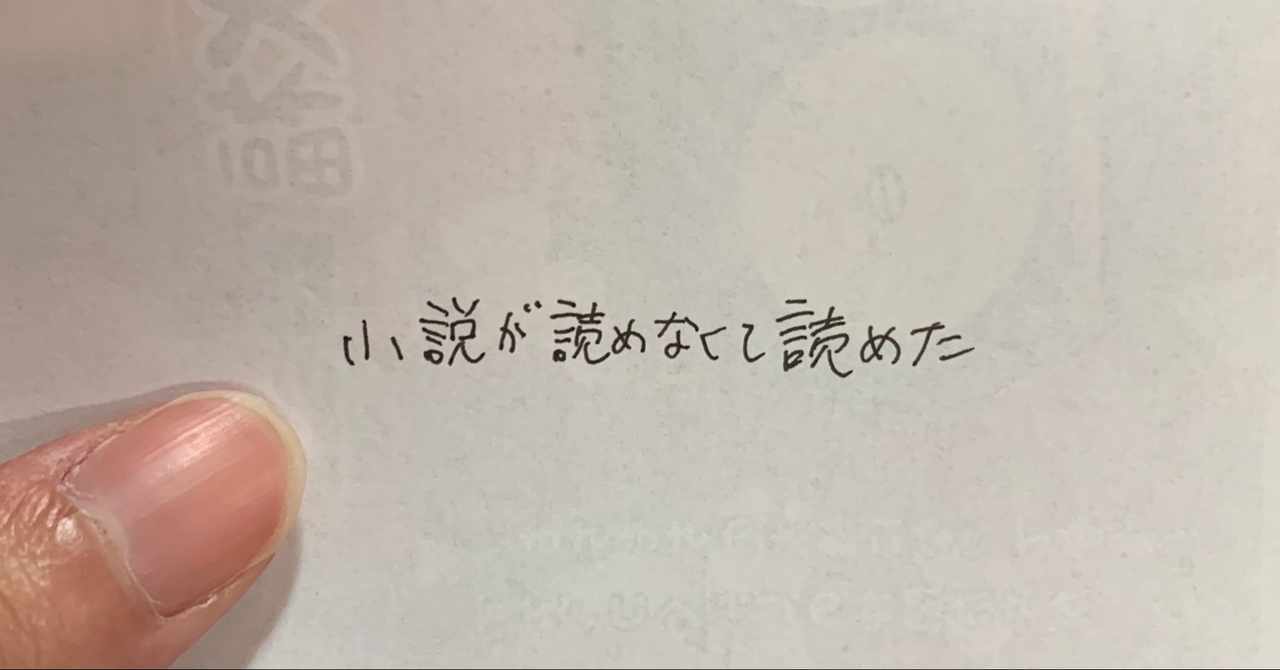 小説が読めなくて読めた